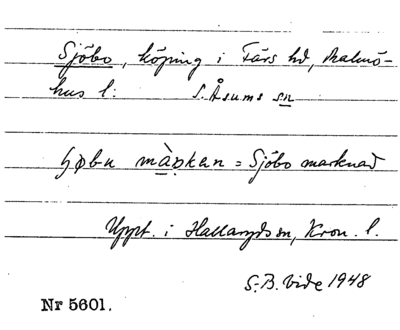 Sjöbo, köping i Färs hd, Malmö-
hus l: S. Åsums sn
ʃøbu màrkan = Sjöbo marknad
Uppt. i Hallaryds sn, Kron. l.
S.-B. Vide 1948
Nr 5601.